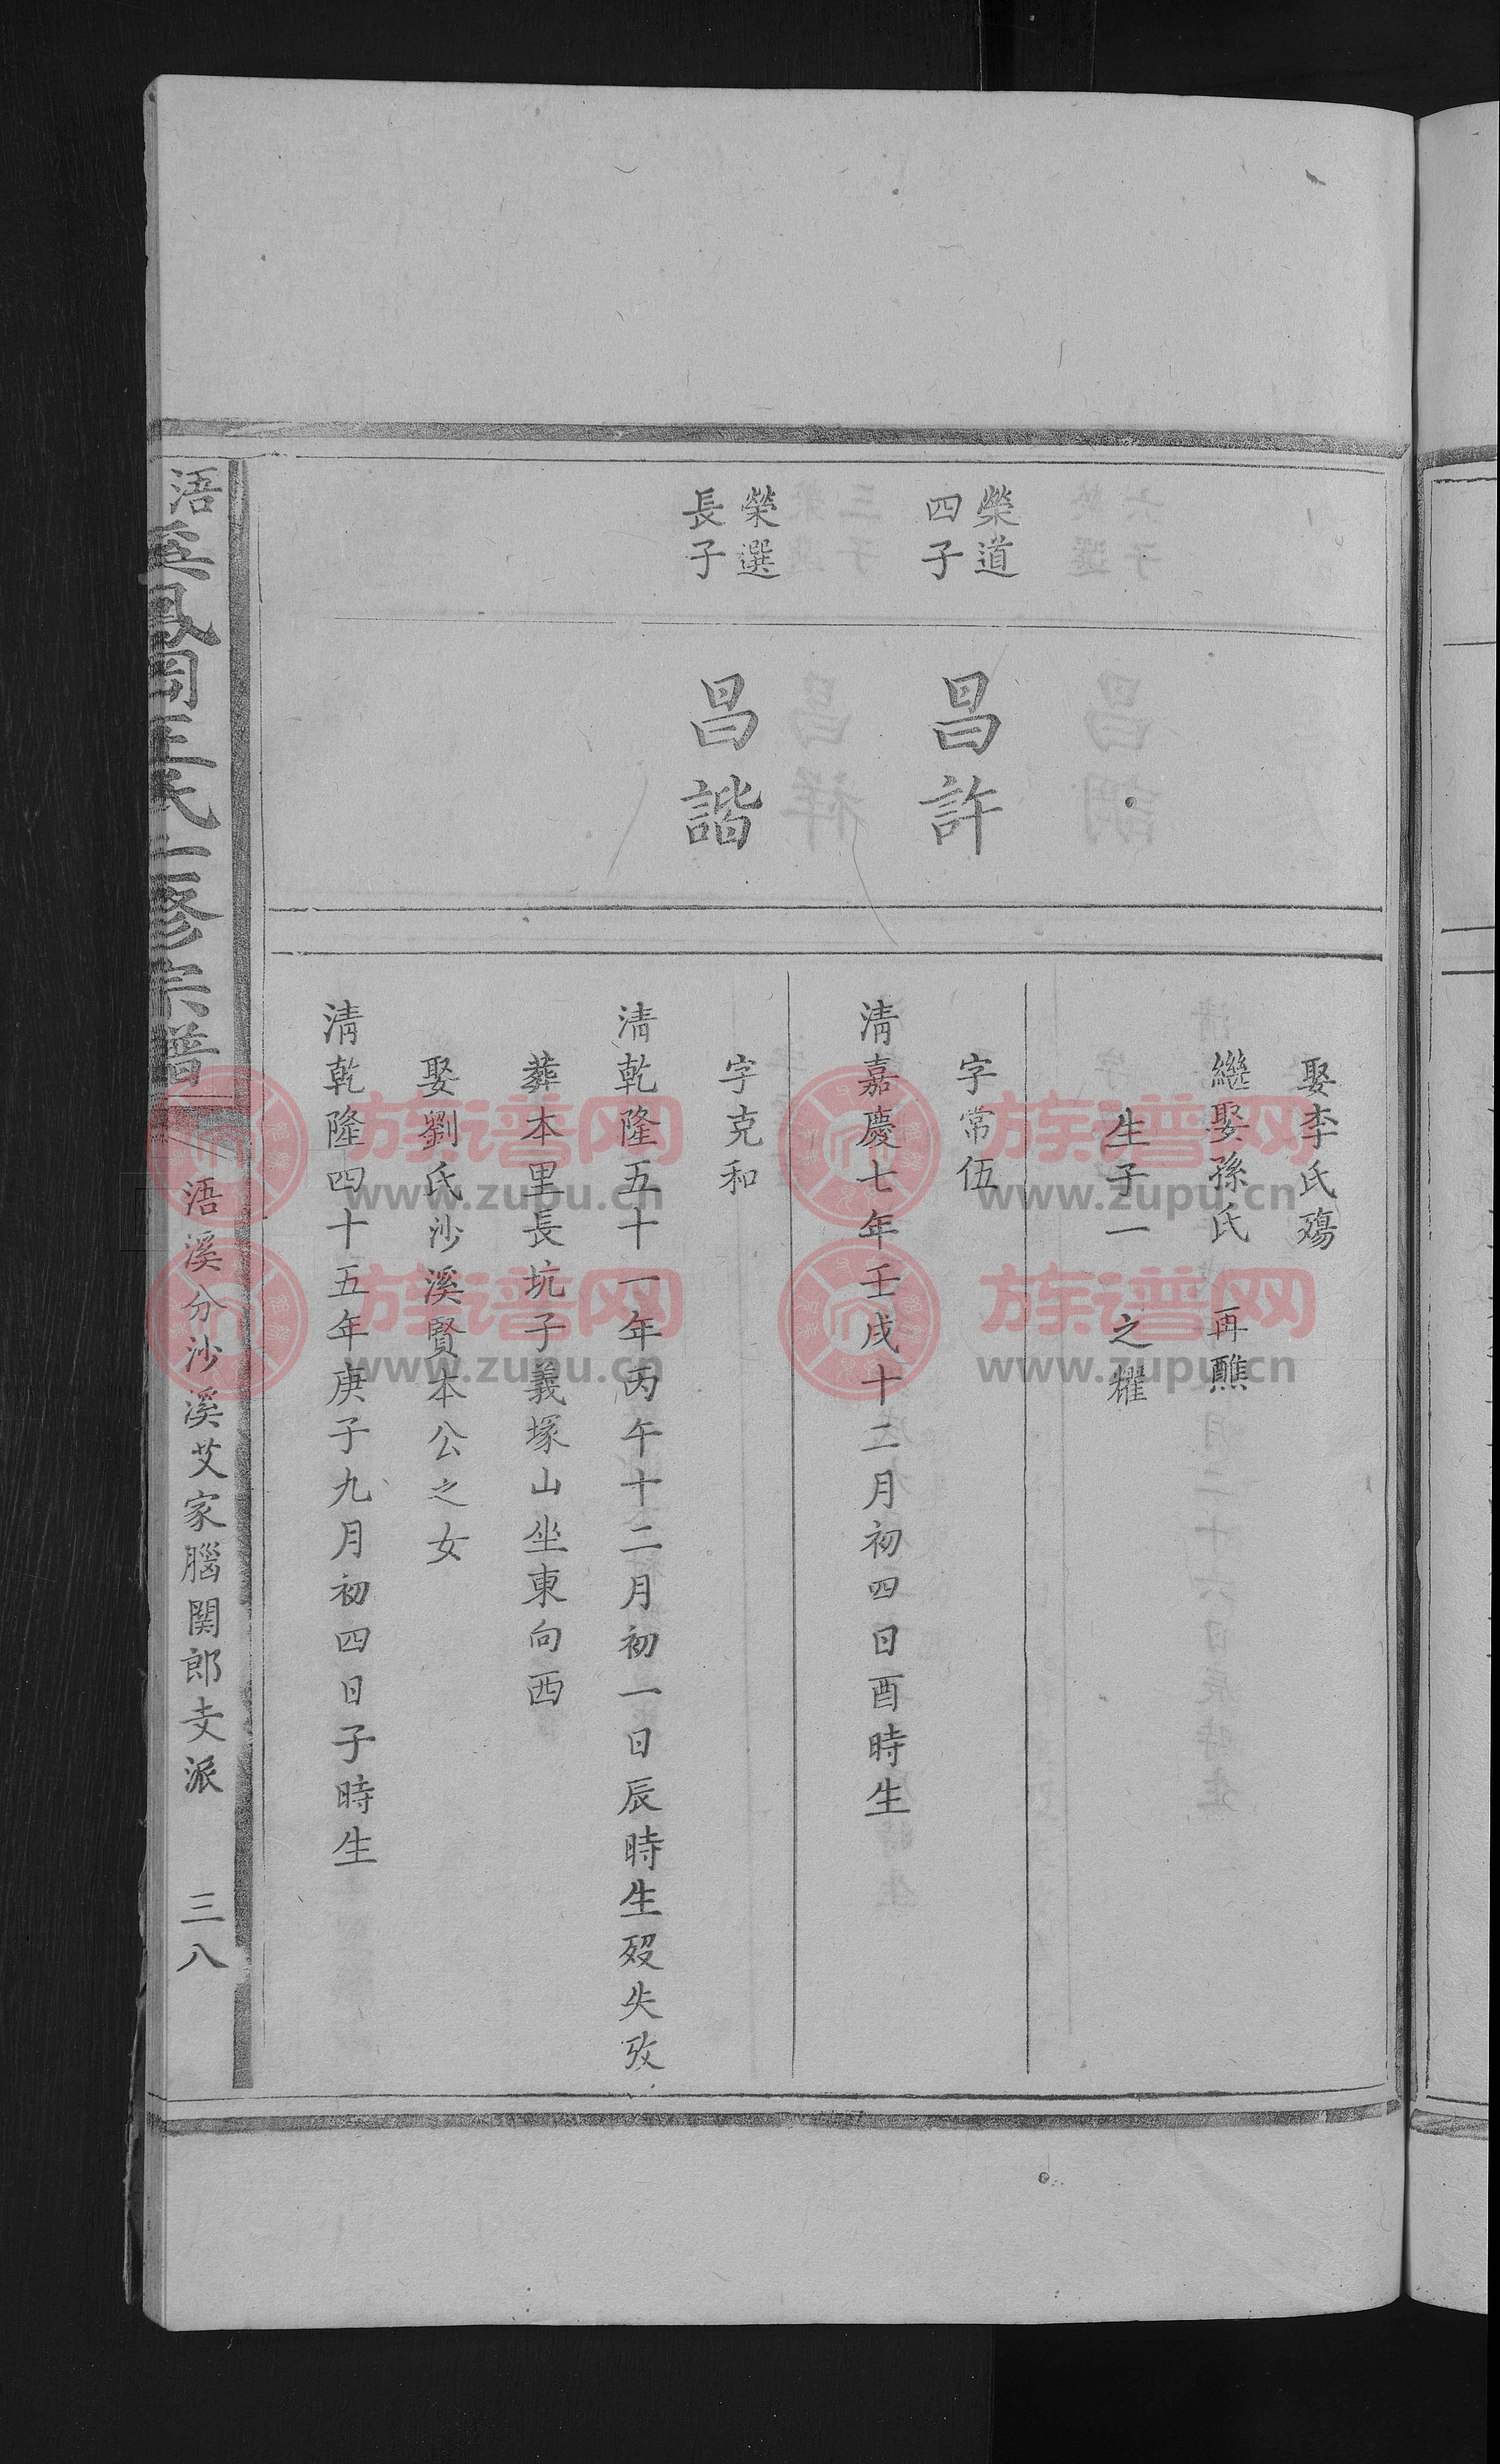 娶李氏殤
繼娶孫氏 再醮
生子一 之櫂
榮道
四子
昌許
字常伍
清嘉慶七年壬戌十二月初四日酉時生
榮選
長子
昌諧
字克和
清乾隆五十一年丙午十二月初一日辰時生歿失攷
葬本里長坑子義塚山坐東向西
娶劉氏沙溪賢本公之女
清乾隆四十五年庚子九月初四日子時生
浯溪鳳岡王氏三修宗譜
浯溪分沙溪艾家腦関郎支派
三八
族谱网
www.zupu.cn
族谱网
www.zupu.cn
族谱网
www.zupu.cn
族谱网
www.zupu.cn